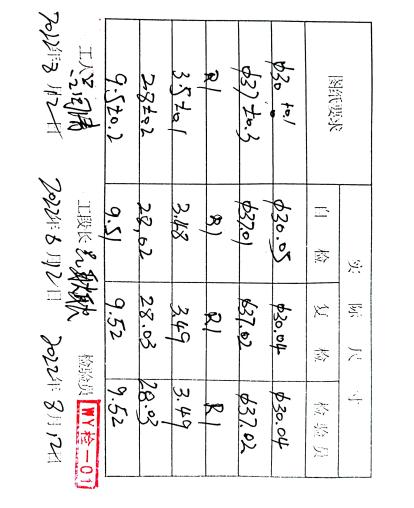 图纸要求 实际尺寸
自检 复检 检验员
φ30 +0.1 0 φ30.05 φ30.04 φ30.04
φ37±0.3 φ37.01 φ37.02 φ37.02
R1 R1 R1 R1
3.5±0.1 3.48 3.49 3.49
28±0.2 28.02 28.03 28.03
9.5±0.2 9.51 9.52 9.52
工人 工段长 检验员 WY检-01
2022年8月12日 2022年8月12日 2022年8月12日